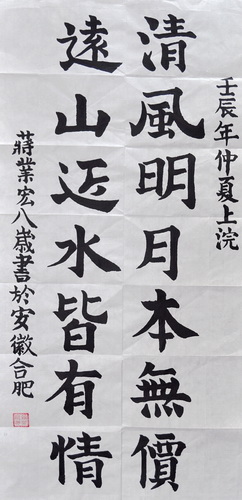 壬辰年仲夏上浣
清風明月本無價
遠山近水皆有情
蔣業宏八歲書於安徽合肥